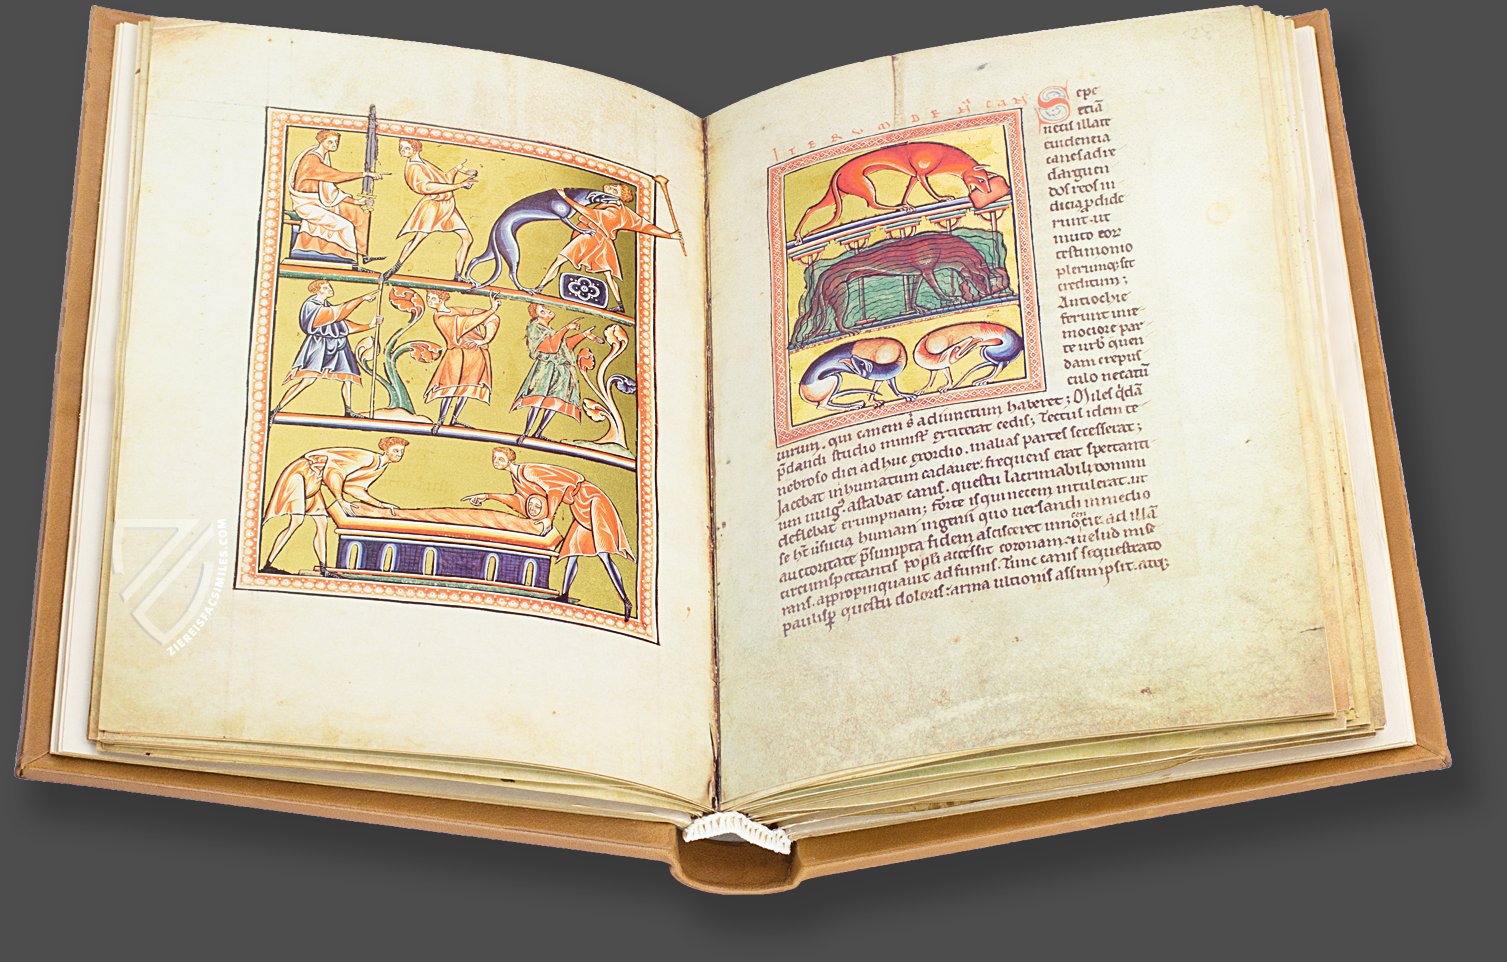 ZIEREISFACSIMILES.COM
ITERUM DE NA CAN
Sepe
etiā
necis illate
euidencia
canes ad re
darguen
dos reos in
dicia pdide
runt. ut
muto eor
testimonio
plerumq; sit
creditum;
Antiochie
ferunt inre
mociore par
te urb quen
dam crepus
culo necatū
uirum. qui canem s adiunctum haberet; Miles qdā
pdandi studio minist extiterat cedis; Tectus idem te
nebroso diei adhuc exordio. in alias partes secesserat;
Jacebat inhumatum cadauer. frequens erat spectanti
um uulg. astabat canis. questu lacrimabili domini
deflebat erumpnam; forte is qui necem intulerat. ut
se ht usucia humani ingenii quo uersandi in medio
auctoritate psumpta fidem ascisceret innocencie. ad illā
circumspectantis popli accessit coronam. uelud mise
rans. appropinquauit ad funus. Tunc canis sequestrato
paulisp questu doloris: arma ultionis assumpsit. atq;